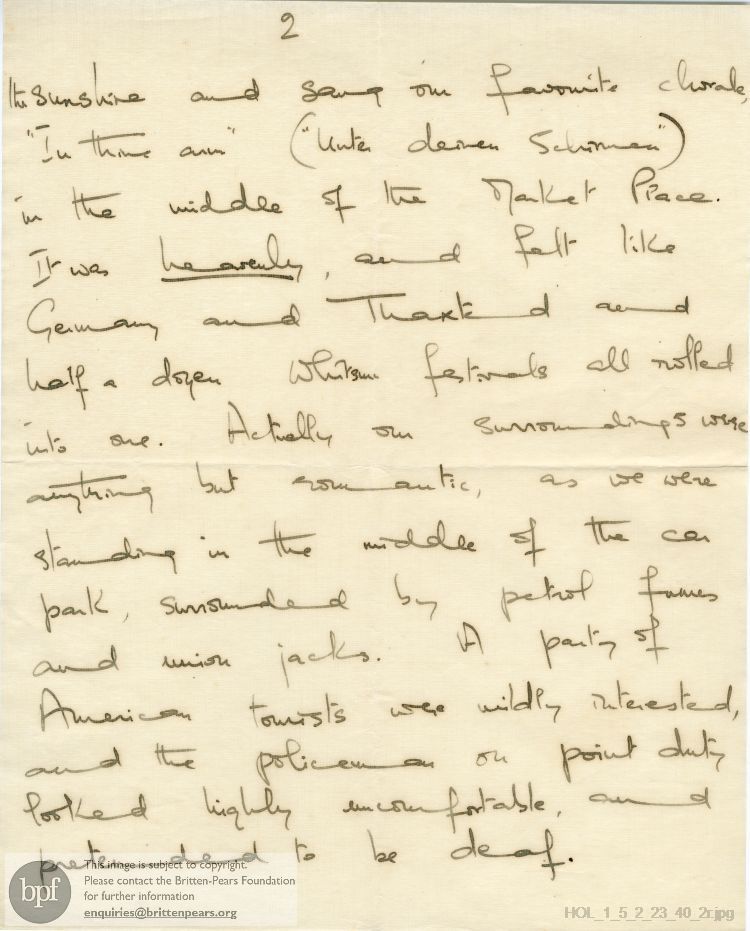 2
the sunshine and sang our favourite chorale,
"In thine arm" ("Unter deinen Schirmen")
in the middle of the Market Place.
It was heavenly, and felt like
Germany and Thaxted and
half a dozen Whitsun festivals all rolled
into one. Actually our surroundings were
anything but romantic, as we were
standing in the middle of the car
park, surrounded by petrol fumes
and union jacks. A party of
American tourists were mildly interested,
and the policeman on point duty
looked highly uncomfortable, and
pretended to be deaf.
bpf
This image is subject to copyright.
Please contact the Britten-Pears Foundation
for further information
enquiries@brittenpears.org
HOL_1_5_2_23_40_2r.jpg